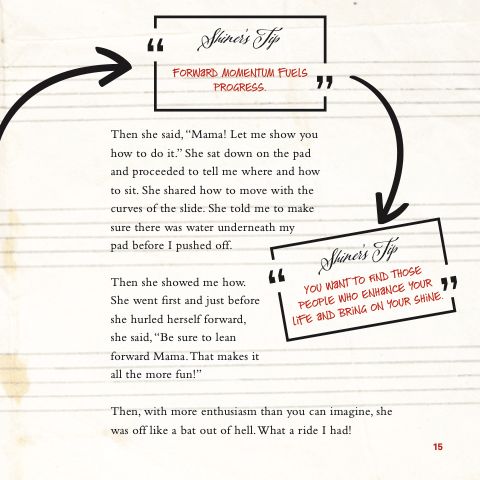 Shiner's Tip
“
FORWARD MOMENTUM FUELS
PROGRESS.
”
Then she said, “Mama! Let me show you
how to do it.” She sat down on the pad
and proceeded to tell me where and how
to sit. She shared how to move with the
curves of the slide. She told me to make
sure there was water underneath my
pad before I pushed off.
Shiner's Tip
“
YOU WANT TO FIND THOSE
PEOPLE WHO ENHANCE YOUR
LIFE AND BRING ON YOUR SHINE.
”
Then she showed me how.
She went first and just before
she hurled herself forward,
she said, “Be sure to lean
forward Mama. That makes it
all the more fun!”
Then, with more enthusiasm than you can imagine, she
was off like a bat out of hell. What a ride I had!
15